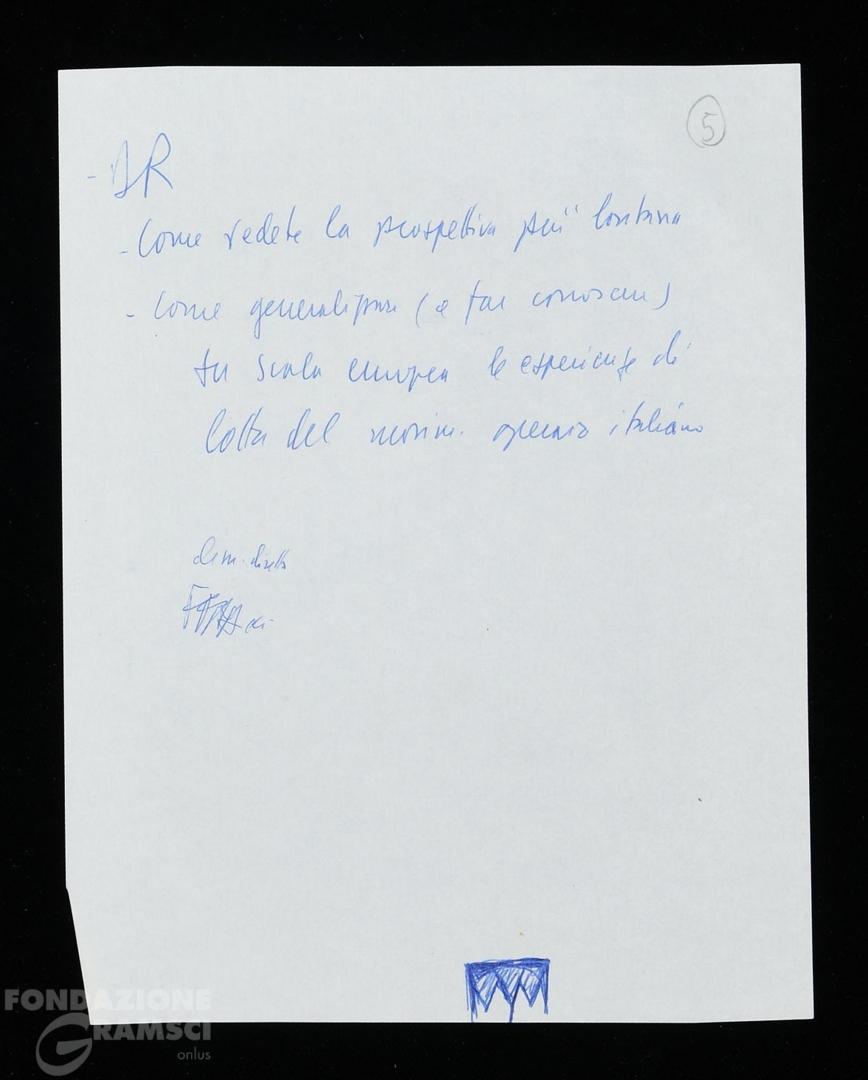 5
- BR
- Come vedete la prospettiva più lontana
- Come generalizzare (e far conoscere)
su scala europea le esperienze di
lotta del movim. operaio italiano
dem. diretta
FONDAZIONE
GRAMSCI
onlus